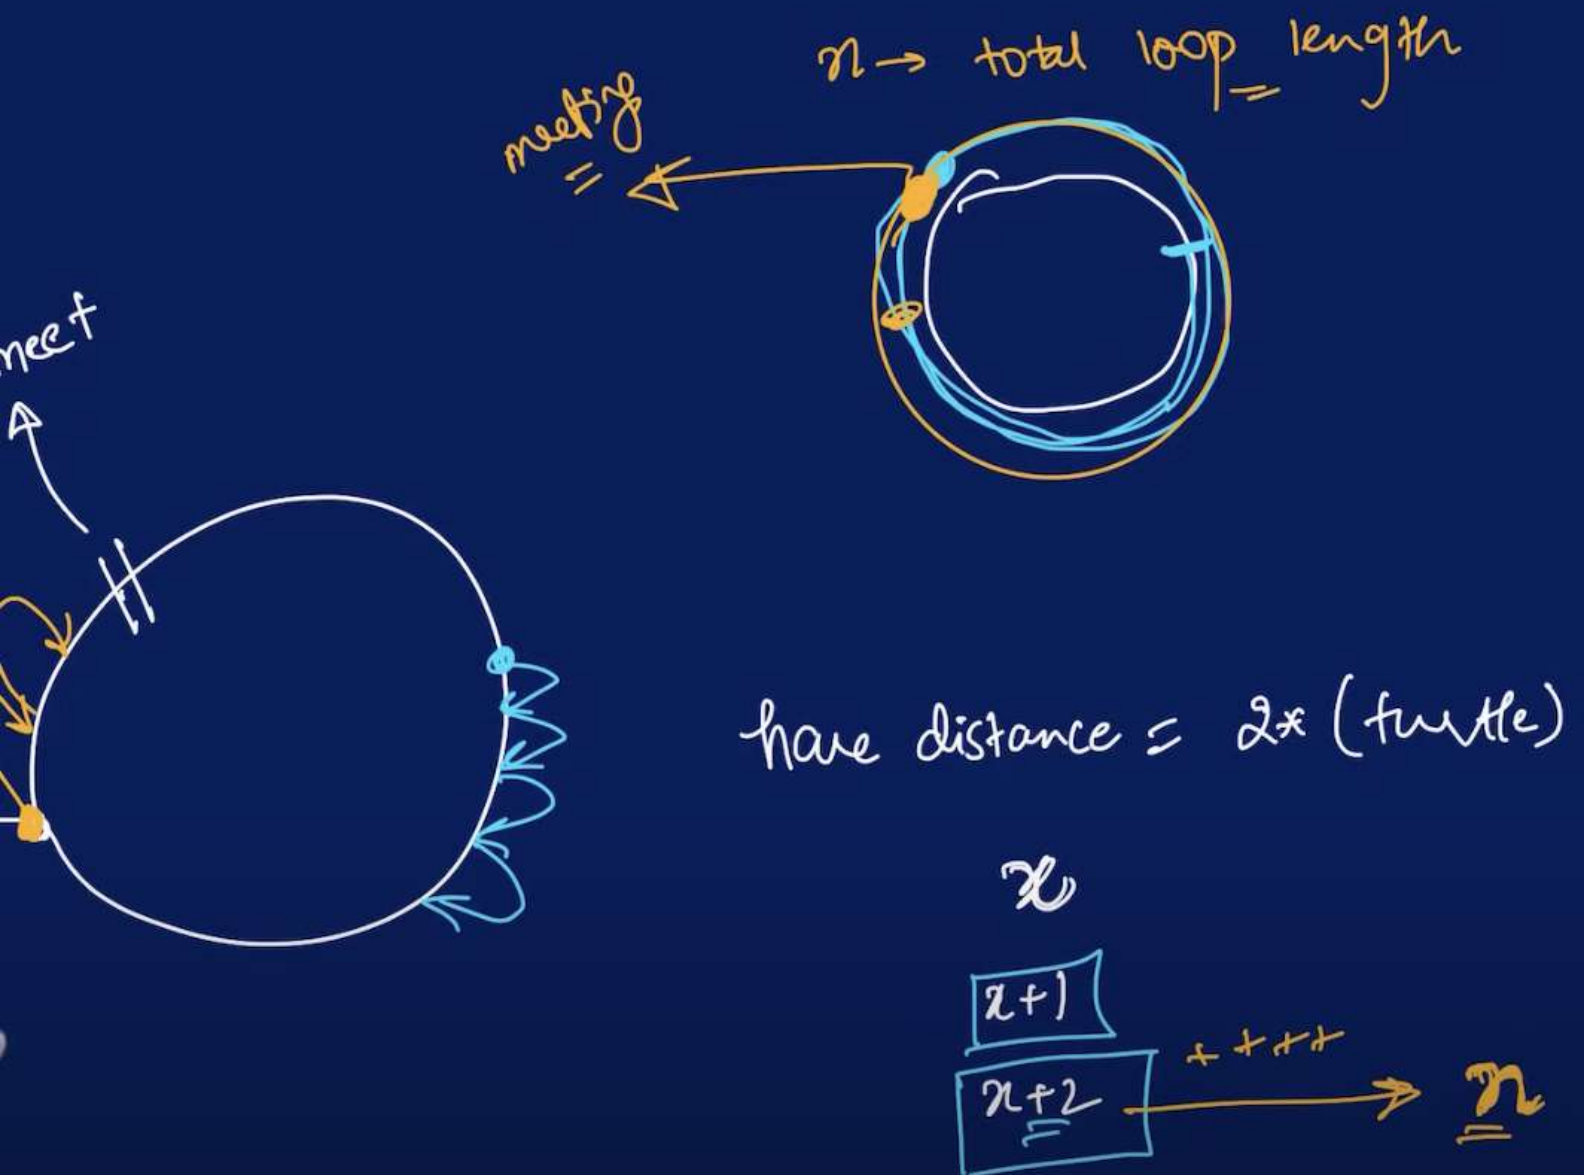 n → total loop length
meeting
meet
hare distance = 2* (turtle)
x
x+1
x+2 + + + + → n